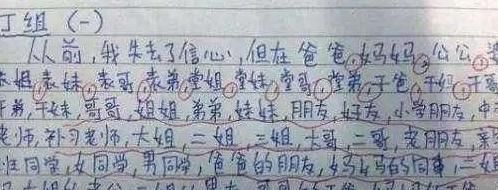 丁组 (一)
从前,我失去了信心,但在爸爸,妈妈,公公,
表姐,表妹,表哥,表弟,堂姐,堂妹,堂哥,堂弟,干爸,干妈,干哥
干弟,干妹,哥哥,姐姐,弟弟,妹妹,朋友,好友,小学朋友,中
老师,补习老师,大姐,二姐,三姐,大哥,二哥,老朋友,亲
班同学,女同学,男同学,爸爸的朋友,妈妈的同事,三